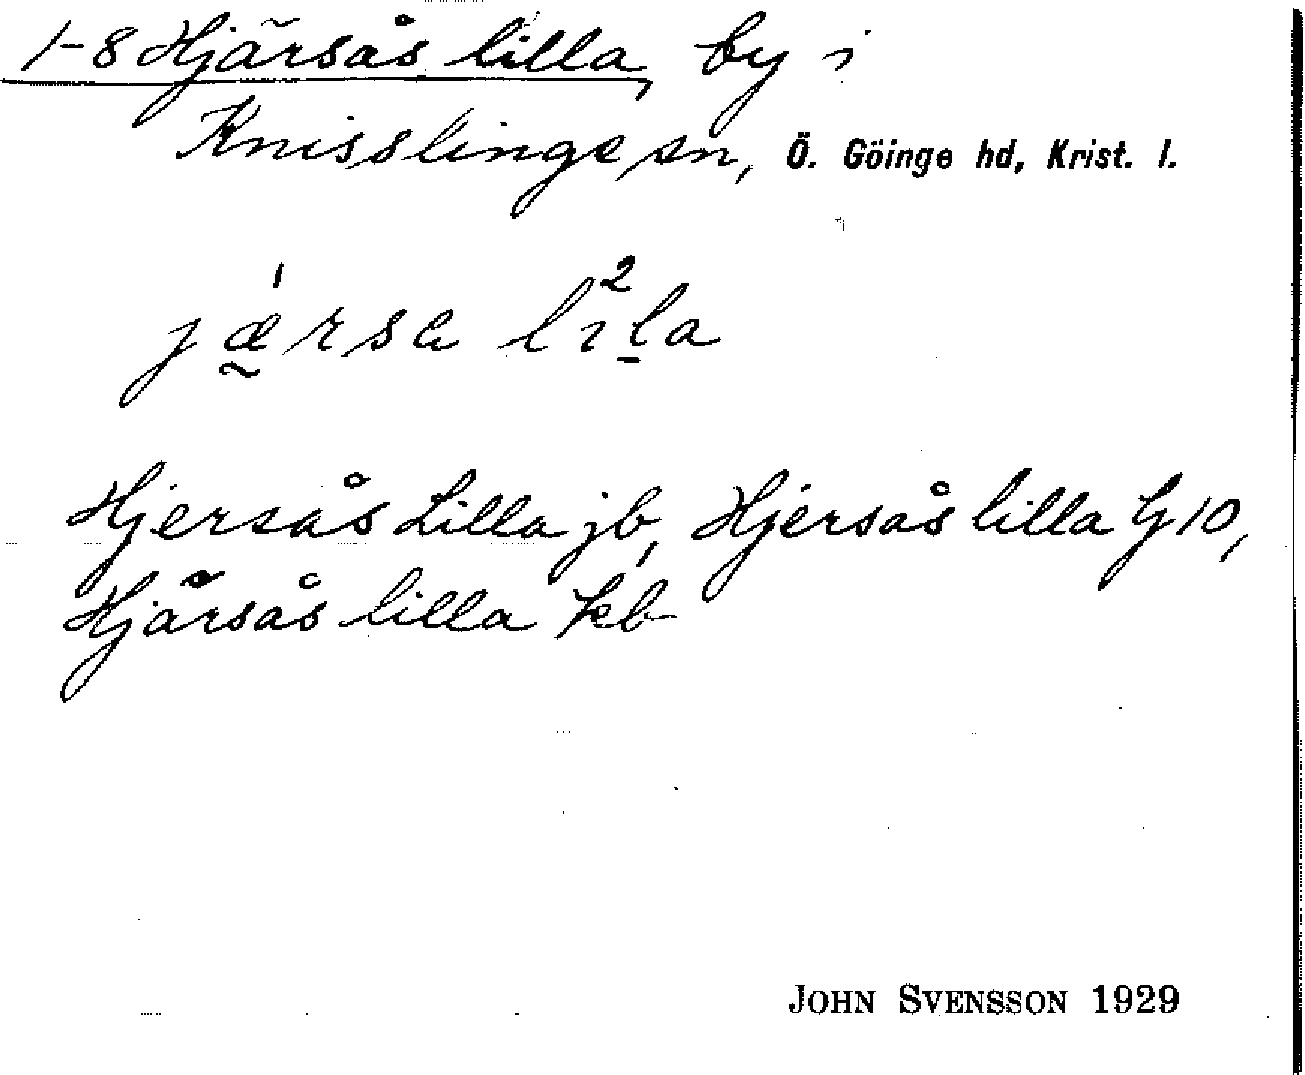 1-8 Hjärsås lilla, by i
Knisslinge sn, Ö. Göinge hd, Krist. l.
jǽ̰rsa lı²l̠a
Hjersås Lilla jb, Hjersås lilla G 10,
Hjärsås lilla kb
JOHN SVENSSON 1929